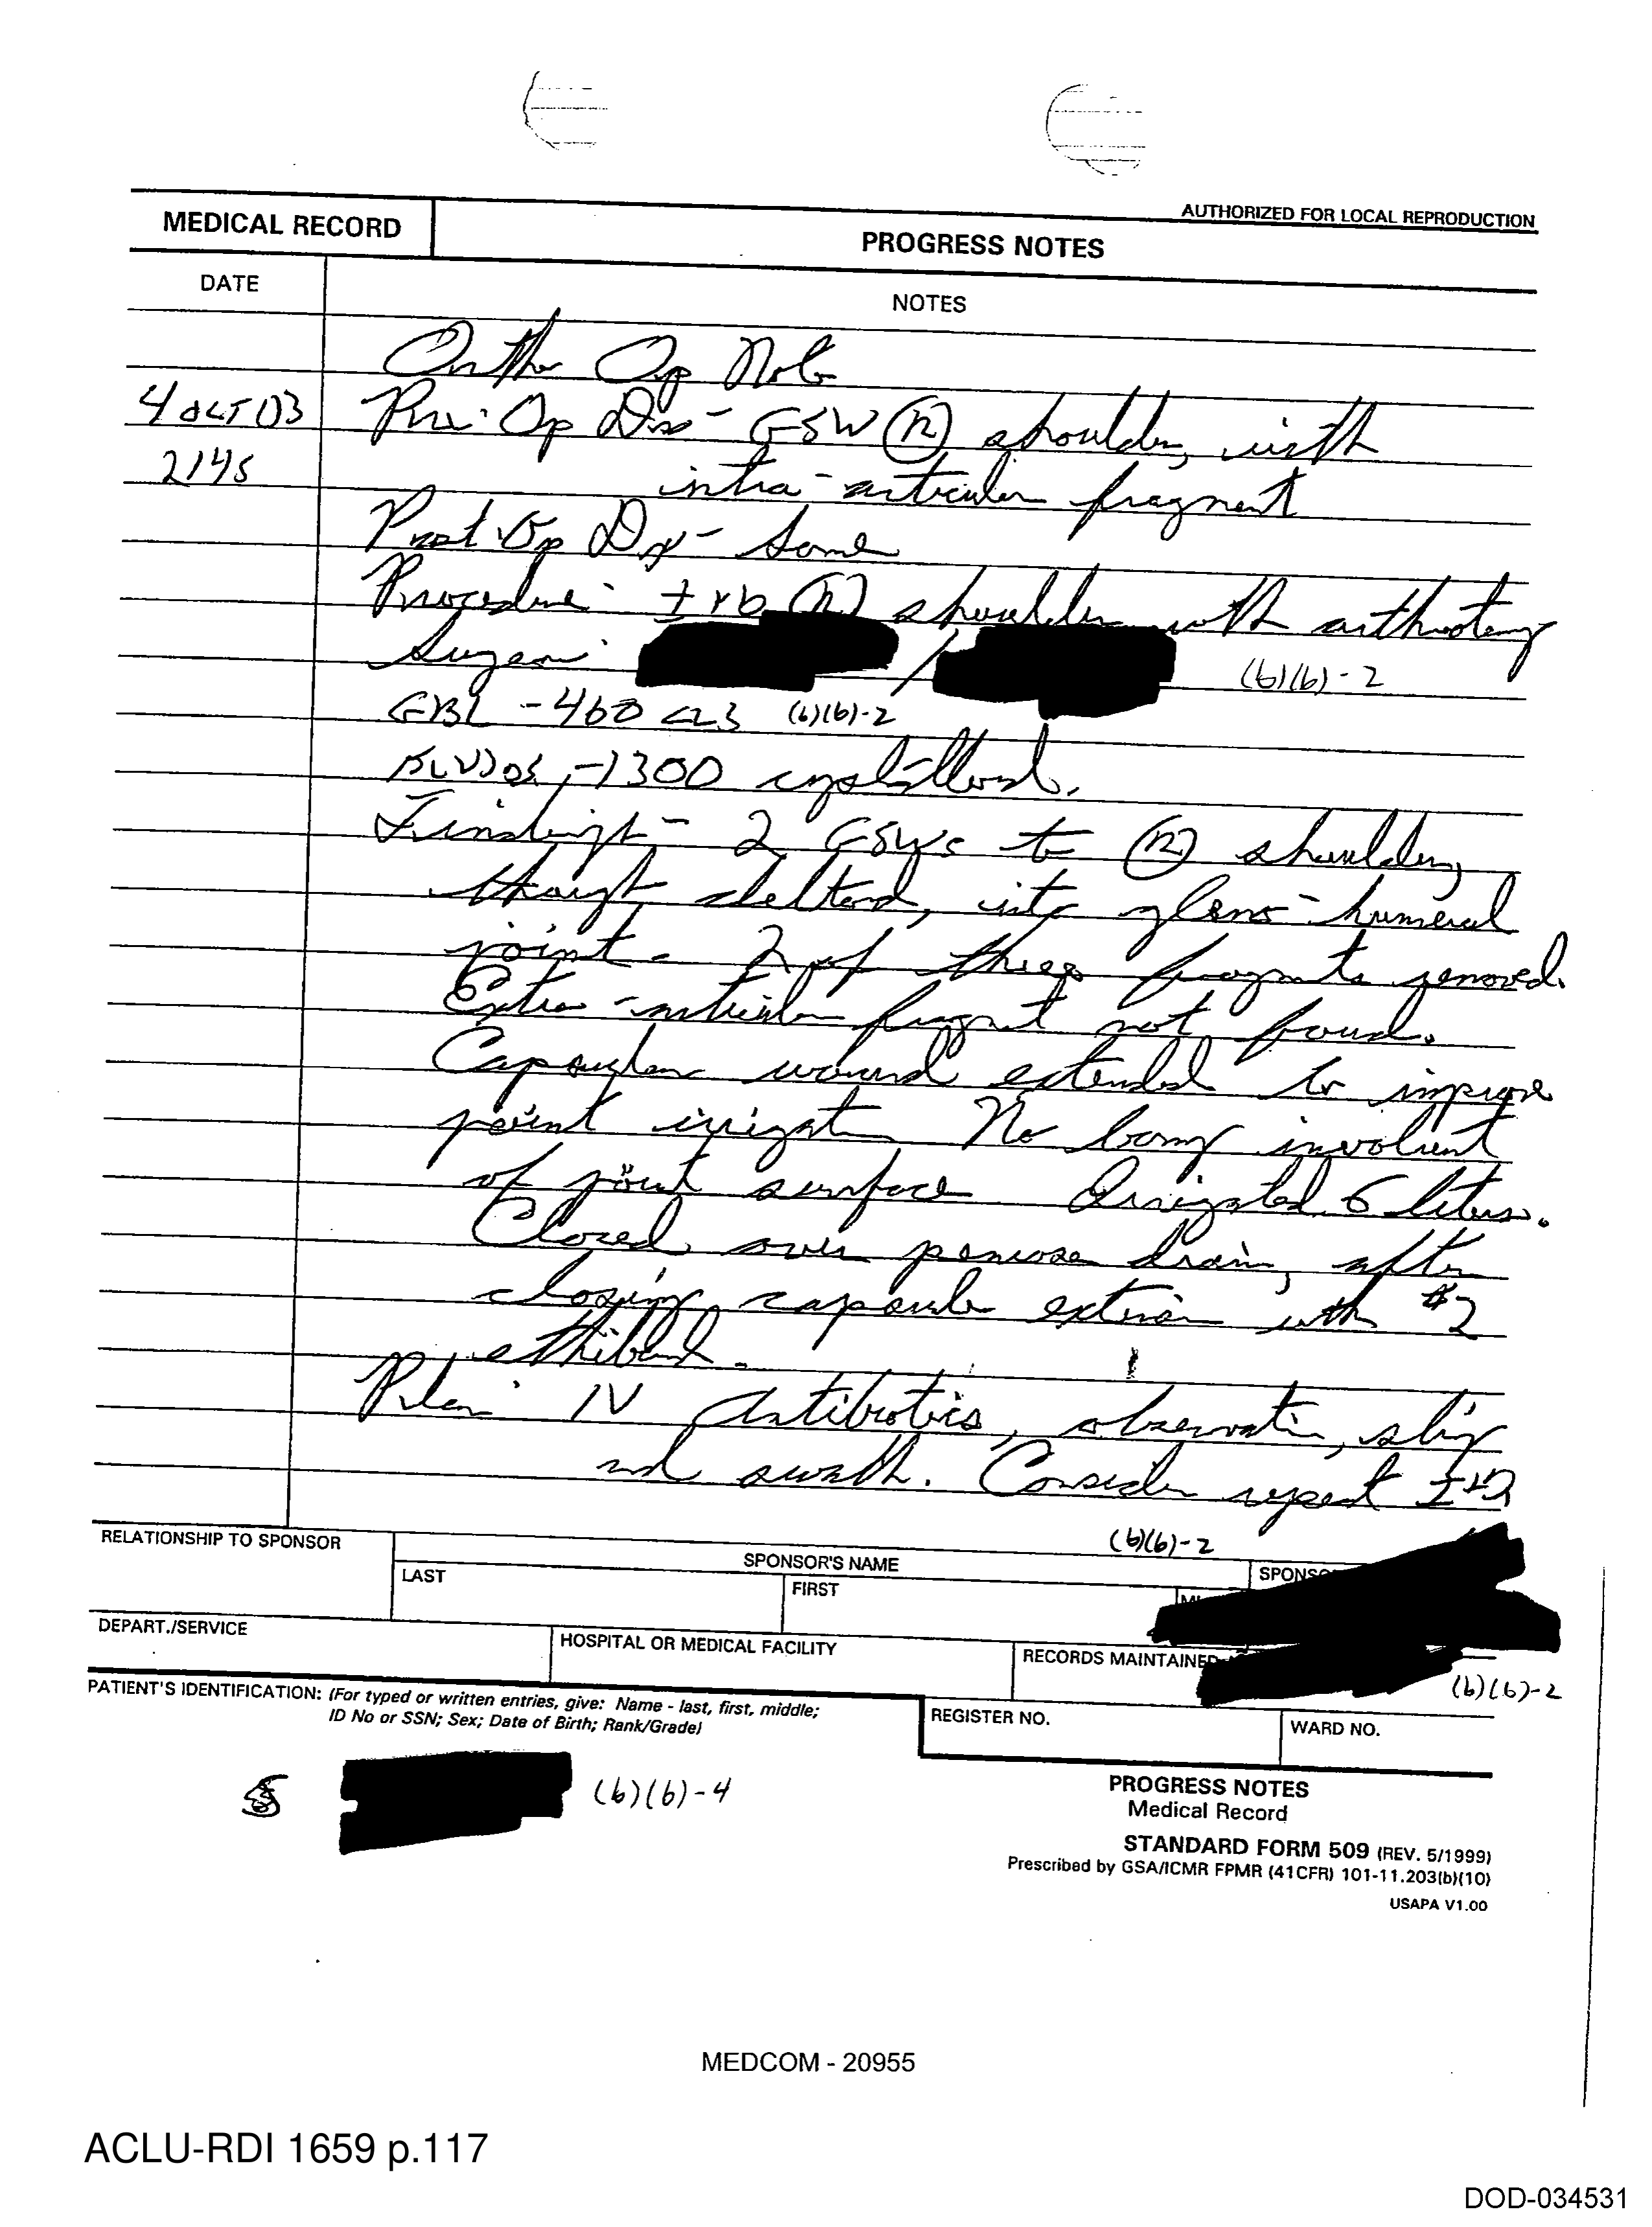 AUTHORIZED FOR LOCAL REPRODUCTION
MEDICAL RECORD
PROGRESS NOTES
DATE
NOTES
Ortho Op Note
4 OCT 03 Pre-Op Dx- GSW (R) shoulder, with
2145 intra-articular fragment
Post Op Dx- Same
Procedure: I+D (R) shoulder with arthrotomy
Surgeon: / (b)(6)-2
EBL -400 cc's (b)(6)-2
FLUIDS -1300 crystalloid.
Findings- 2 GSWs to (R) shoulder,
deltoid, into gleno-humeral
joint- 2 of three fragments removed.
Extra-articular fragmet not found.
Capsular wound extended to improve
joint irrigation No bony involvment
of joint surface Irrigated 6 liters.
Closed over penrose drain, after
closing capsule extension with #2
ethibond.
Plan: IV Antibiotics, observation, sling
and swath. Consider repeat I+D
(b)(6)-2
RELATIONSHIP TO SPONSOR
SPONSOR'S NAME
LAST
FIRST
MI
DEPART./SERVICE
HOSPITAL OR MEDICAL FACILITY
RECORDS MAINTAINED
(b)(6)-2
PATIENT'S IDENTIFICATION: (For typed or written entries, give: Name - last, first, middle;
ID No or SSN; Sex; Date of Birth; Rank/Grade)
REGISTER NO.
WARD NO.
(b)(6)-4
PROGRESS NOTES
Medical Record
STANDARD FORM 509 (REV. 5/1999)
Prescribed by GSA/ICMR FPMR (41CFR) 101-11.203(b)(10)
USAPA V1.00
MEDCOM - 20955
ACLU-RDI 1659 p.117
DOD-034531